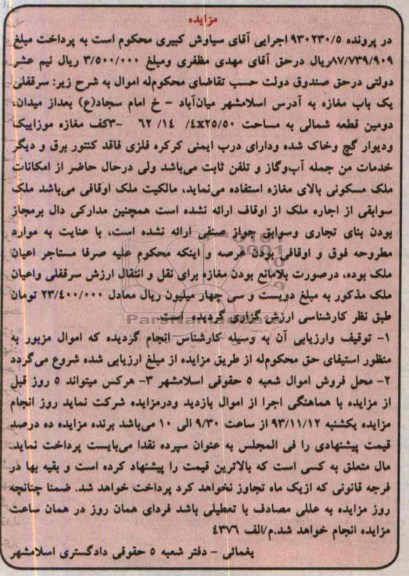 مزایده
در پرونده ۹۳۰۲۳۰/۵ اجرایی آقای سیاوش کبیری محکوم است به پرداخت مبلغ
۸۷/۷۳۹/۹۰۹ریال درحق آقای مهدی مظفری ومبلغ ۳/۵۰۰/۰۰۰ ریال نیم عشر
دولتی درحق صندوق دولت حسب تقاضای محکوم‌له اموال به شرح زیر: سرقفلی
یک باب مغازه به آدرس اسلامشهر میان‌آباد - خ امام سجاد(ع) بعداز میدان،
دومین قطعه شمالی به مساحت ۴x۲۵/۵۰/ ۱۴/ ۶۲ -۳کف مغازه موزاییک
ودیوار گچ وخاک شده ودارای درب ایمنی کرکره فلزی فاقد کنتور برق و دیگر
خدمات من جمله آب‌وگاز و تلفن ثابت می‌باشد ولی درحال حاضر از امکانات
ملک مسکونی بالای مغازه استفاده می‌نماید، مالکیت ملک اوقافی می‌باشد ملک
سوابقی از اجاره ملک از اوقاف ارائه نشده است همچنین مدارکی دال برمجاز
بودن بنای تجاری وسوابق جواز صنفی ارائه نشده است، با عنایت به موارد
مطروحه فوق و اوقافی بودن عرصه و اینکه محکوم علیه صرفا مستاجر اعیان
ملک بوده، درصورت بلامانع بودن مغازه برای نقل و انتقال ارزش سرقفلی واعیان
ملک مذکور به مبلغ دویست و سی چهار میلیون ریال معادل ۲۳/۴۰۰/۰۰۰ تومان
طبق نظر کارشناسی ارزش گزاری گردیده است
۱- توقیف وارزیابی آن به وسیله کارشناس انجام گردیده که اموال مزبور به
منظور استیفای حق محکوم‌له از طریق مزایده از مبلغ ارزیابی شده شروع می‌گردد
۲- محل فروش اموال شعبه ۵ حقوقی اسلامشهر ۳- هرکس میتواند ۵ روز قبل
از مزایده با هماهنگی اجرا از اموال بازدید ودرمزایده شرکت نماید روز انجام
مزایده یکشنبه ۹۳/۱۱/۱۲ از ساعت ۹/۳۰ الی ۱۰ می‌باشد برنده مزایده ده درصد
قیمت پیشنهادی را فی المجلس به عنوان سپرده نقدا می‌بایست پرداخت نماید.
مال متعلق به کسی است که بالاترین قیمت را پیشنهاد کرده است و بقیه بها در
فرجه قانونی که ازیک ماه تجاوز نخواهد کرد پرداخت خواهد شد. ضمنا چنانچه
روز مزایده به عللی مصادف با تعطیلی باشد فردای همان روز در همان ساعت
مزایده انجام خواهد شد.م/الف ۴۳۷۶
یغمائی - دفتر شعبه ۵ حقوقی دادگستری اسلامشهر